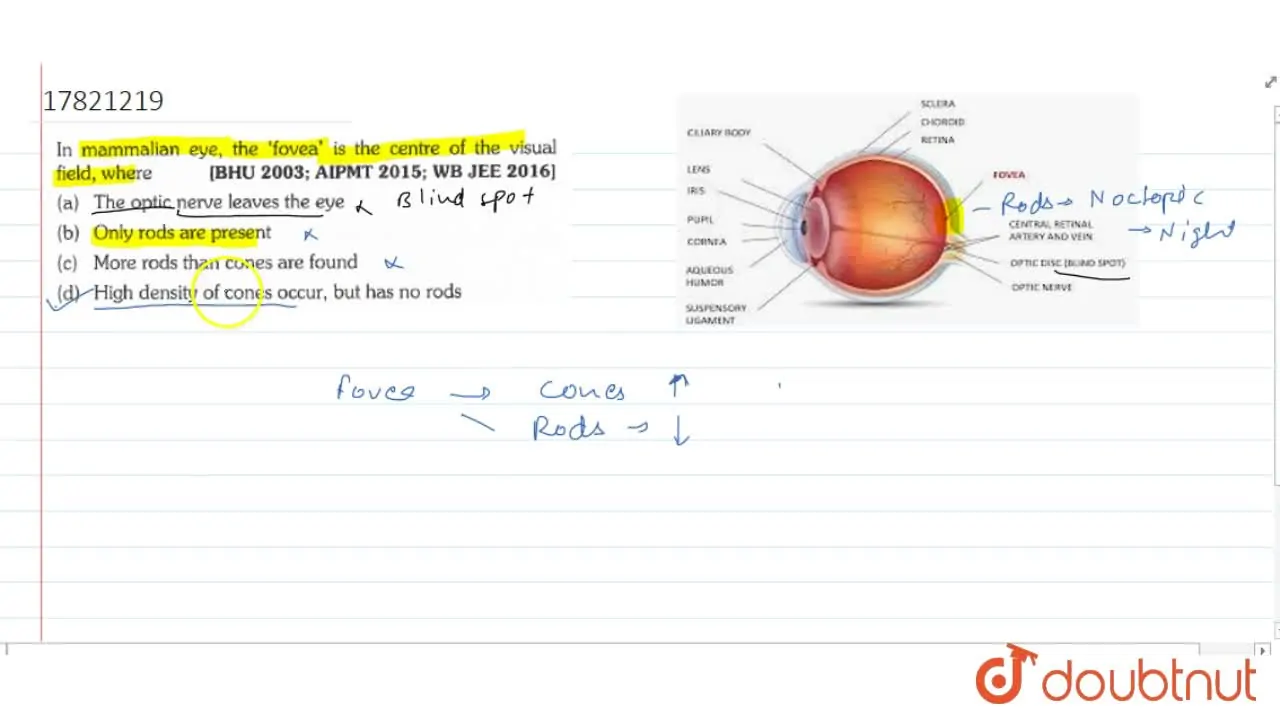 17821219
In mammalian eye, the 'fovea' is the centre of the visual
field, where [BHU 2003; AIPMT 2015; WB JEE 2016]
(a) The optic nerve leaves the eye Blind spot
(b) Only rods are present
(c) More rods than cones are found
(d) High density of cones occur, but has no rods
SCLERA
CHOROID
RETINA
CILIARY BODY
LENS
IRIS
PUPIL
CORNEA
AQUEOUS
HUMOR
SUSPENSORY
LIGAMENT
FOVEA
Rods → Noctopic
→ Night
CENTRAL RETINAL
ARTERY AND VEIN
OPTIC DISC (BLIND SPOT)
OPTIC NERVE
Fovea → Cones ↑
Rods → ↓
doubtnut